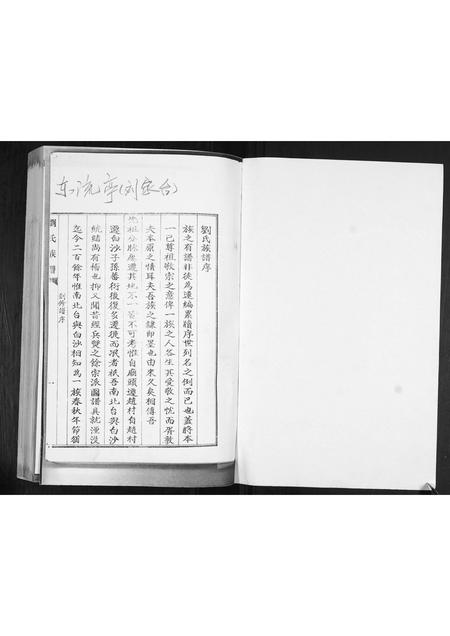 东流亭(刘家台)
劉氏族譜序
族之有譜非徒為連編累牘序世列名之例而已也蓋將本
一己尊祖敬宗之意俾一族之人各生其愛敬之忱而胥敦
夫本原之情耳夫吾族之隸即墨也由來久矣相傳吾
先祖分脉處遷其地不一皆不可考惟自廟頭遷趙村自趙村
遷白沙子孫蕃衍後復多遷徙而流者祇吾南北台與白沙
統緒尚有稽也抑又聞昔經兵燹之餘宗派圖譜具就湮沒
迄今二百餘年惟南北台與白沙相知為一族春秋年節猶
劉氏族譜
創修譜序
一